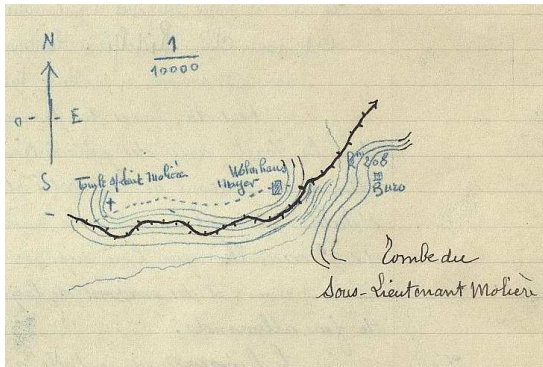 N
1
10000
O - - E
S
Tombe s/Lieut Molière
Wohnhaus
Mayer
268
Buro
Tombe du
Sous-Lieutenant Molière